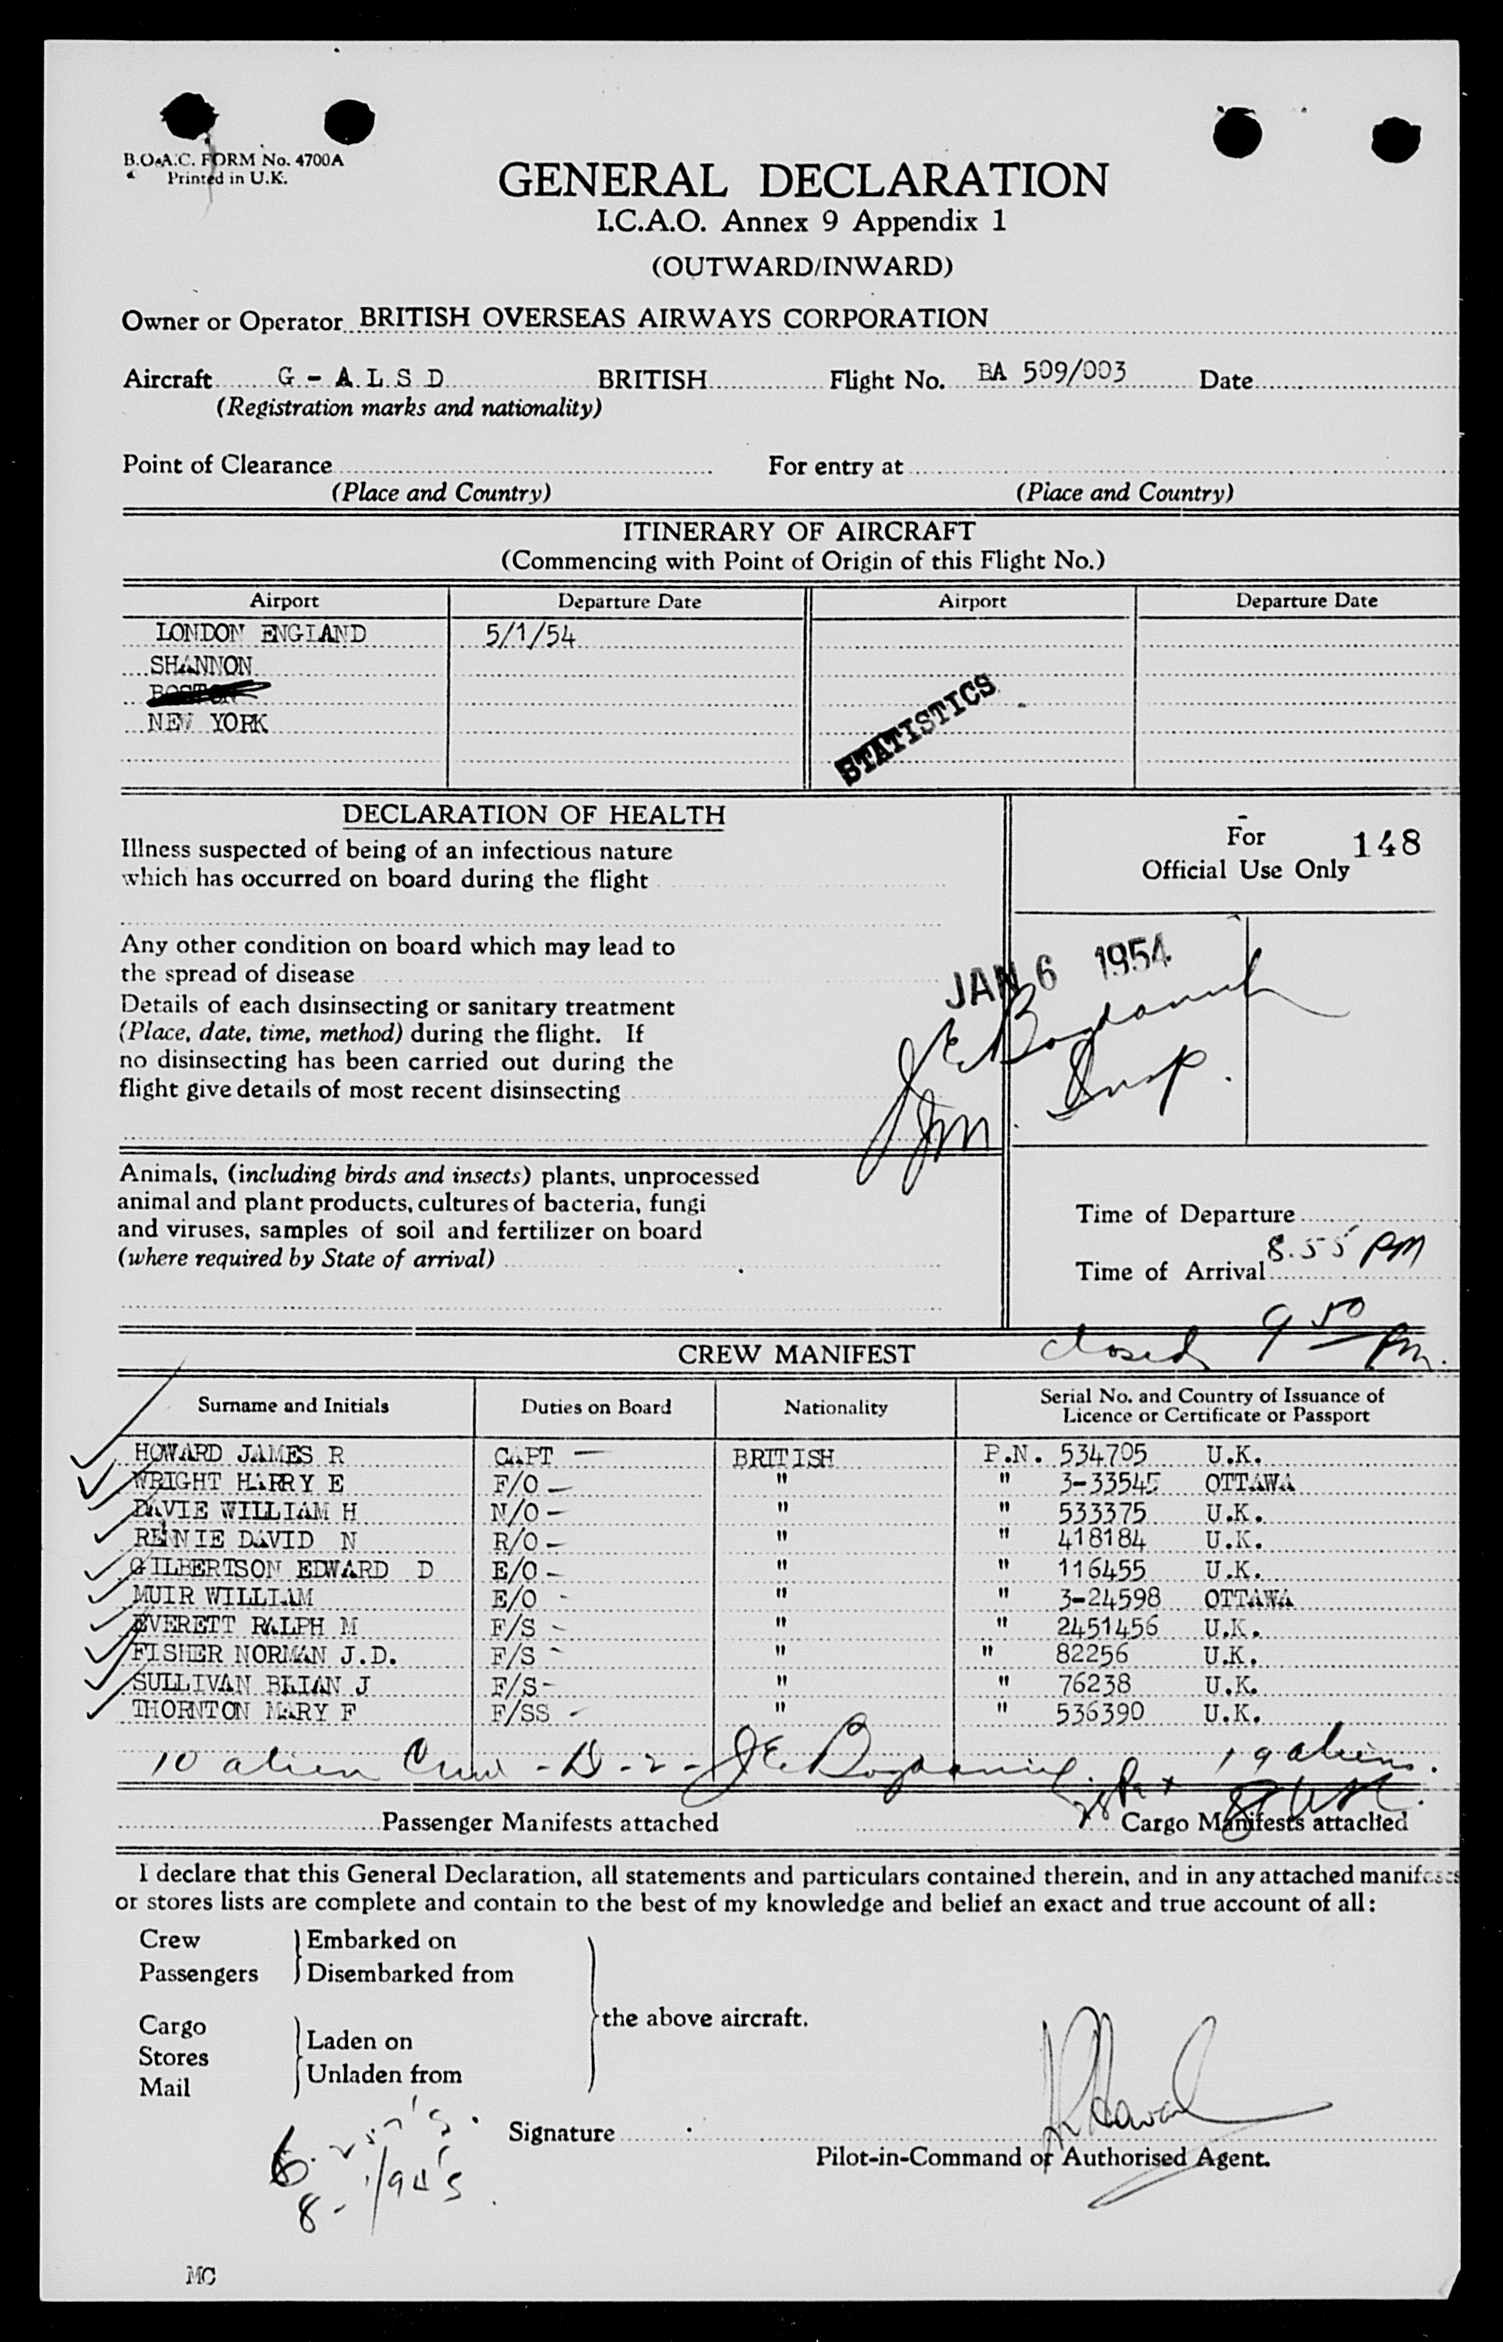 B.O.A.C. FORM No. 4700A
Printed in U.K.
GENERAL DECLARATION
I.C.A.O. Annex 9 Appendix 1
(OUTWARD/INWARD)
Owner or Operator BRITISH OVERSEAS AIRWAYS CORPORATION
Aircraft G - A L S D BRITISH Flight No. BA 509/003 Date
(Registration marks and nationality)
Point of Clearance For entry at
(Place and Country) (Place and Country)
ITINERARY OF AIRCRAFT
(Commencing with Point of Origin of this Flight No.)
Airport Departure Date Airport Departure Date
LONDON ENGLAND 5/1/54
SHANNON
BOSTON
NEW YORK
STATISTICS
DECLARATION OF HEALTH
Illness suspected of being of an infectious nature
which has occurred on board during the flight
For
Official Use Only 148
Any other condition on board which may lead to
the spread of disease
JAN 6 1954
Details of each disinsecting or sanitary treatment
(Place, date, time, method) during the flight. If
no disinsecting has been carried out during the
flight give details of most recent disinsecting
Imm. Insp.
Animals, (including birds and insects) plants, unprocessed
animal and plant products, cultures of bacteria, fungi
and viruses, samples of soil and fertilizer on board
(where required by State of arrival)
Time of Departure
Time of Arrival 8.55 PM
closed 9 50 Pm.
CREW MANIFEST
Surname and Initials Duties on Board Nationality Serial No. and Country of Issuance of
Licence or Certificate or Passport
HOWARD JAMES R CAPT BRITISH P.N. 534705 U.K.
WRIGHT HARRY E F/O " " 3-33545 OTTAWA
DAVIE WILLIAM H N/O " " 533375 U.K.
RENNIE DAVID N R/O " " 418184 U.K.
GILBERTSON EDWARD D E/O " " 116455 U.K.
MUIR WILLIAM E/O " " 3-24598 OTTAWA
EVERETT RALPH M F/S " " 2451456 U.K.
FISHER NORMAN J.D. F/S " " 82256 U.K.
SULLIVAN BRIAN J F/S " " 76238 U.K.
THORNTON MARY F F/SS " " 536390 U.K.
10 alien Crew - D-2- 19 aliens.
Passenger Manifests attached Cargo Manifests attached
I declare that this General Declaration, all statements and particulars contained therein, and in any attached manifests
or stores lists are complete and contain to the best of my knowledge and belief an exact and true account of all:
Crew Embarked on
Passengers Disembarked from
the above aircraft.
Cargo Laden on
Stores Unladen from
Mail
Signature
Pilot-in-Command or Authorised Agent.
MC